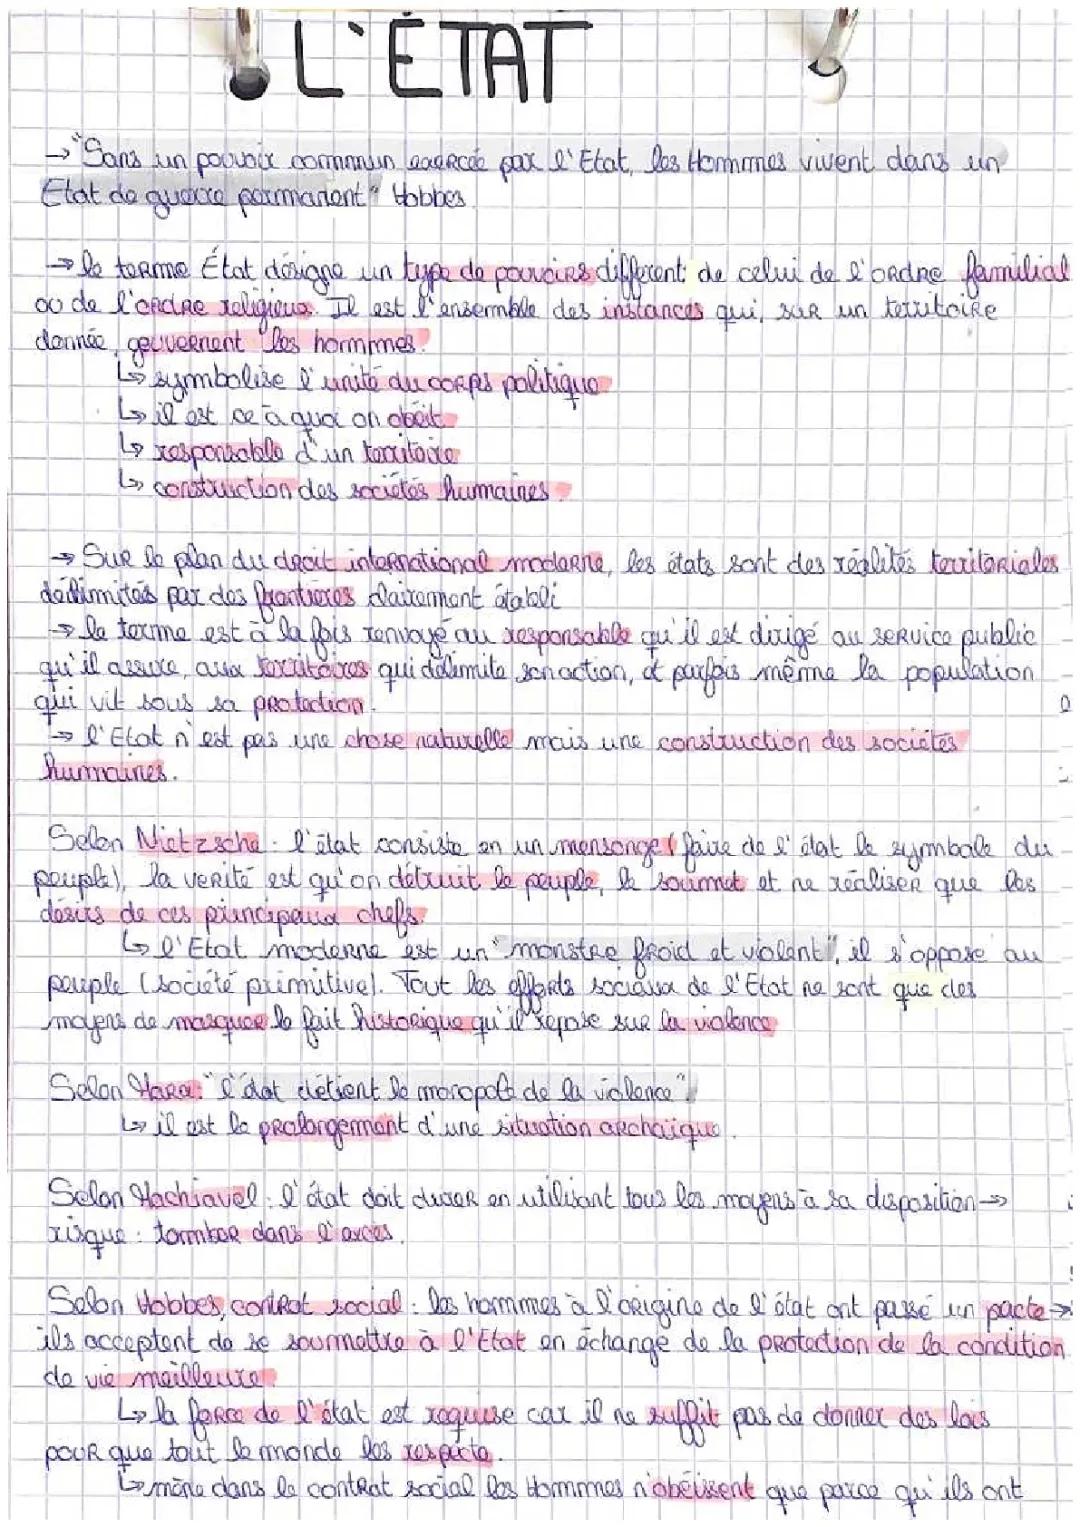 L'ÉTAT
→ "Sans un pouvoir commun exercée par l'Etat, les Hommes vivent dans un
Etat de guerre permanent" Hobbes.
→ le terme État désigne un type de pouvoirs différent de celui de l'ordre familial
ou de l'ordre religieux. Il est l'ensemble des instances qui, sur un territoire
donnée, gouvernent les hommes.
↳ symbolise l'unité du corps politique
↳ il est ce à quoi on obéit
↳ responsable d'un territoire
↳ construction des sociétés humaines
→ Sur le plan du droit international moderne, les états sont des réalités territoriales
délimités par des frontières clairement établi
→ le terme est à la fois renvoyé au responsable qu'il est dirigé au service public
qu'il assure, aux territoires qui délimite son action, et parfois même la population
qui vit sous sa protection.
→ l'Etat n'est pas une chose naturelle mais une construction des sociétés
humaines.
Selon Nietzsche : l'état consiste en un mensonge (faire de l'état le symbole du
peuple), la verité est qu'on détruit le peuple, le soumet et ne réaliser que les
désirs de ces principaux chefs.
↳ l'Etat moderne est un "monstre froid et violent", il s'oppose au
peuple (société primitive). Tout les efforts sociaux de l'Etat ne sont que des
moyens de masquer le fait historique qu'il repose sur la violence
Selon Marx: "l'état détient le monopole de la violence"
↳ il est le prolongement d'une situation archaïque.
Selon Machiavel : l'état doit durer en utilisant tous les moyens à sa disposition →
risque : tomber dans l'excès.
Selon Hobbes, contrat social : les hommes à l'origine de l'état ont passé un pacte →
ils acceptent de se soumettre à l'Etat en échange de la protection de la condition
de vie meilleure.
↳ la force de l'état est requise car il ne suffit pas de donner des lois
pour que tout le monde les respecte.
↳ même dans le contrat social les Hommes n'obéissent que parce qu'ils ont